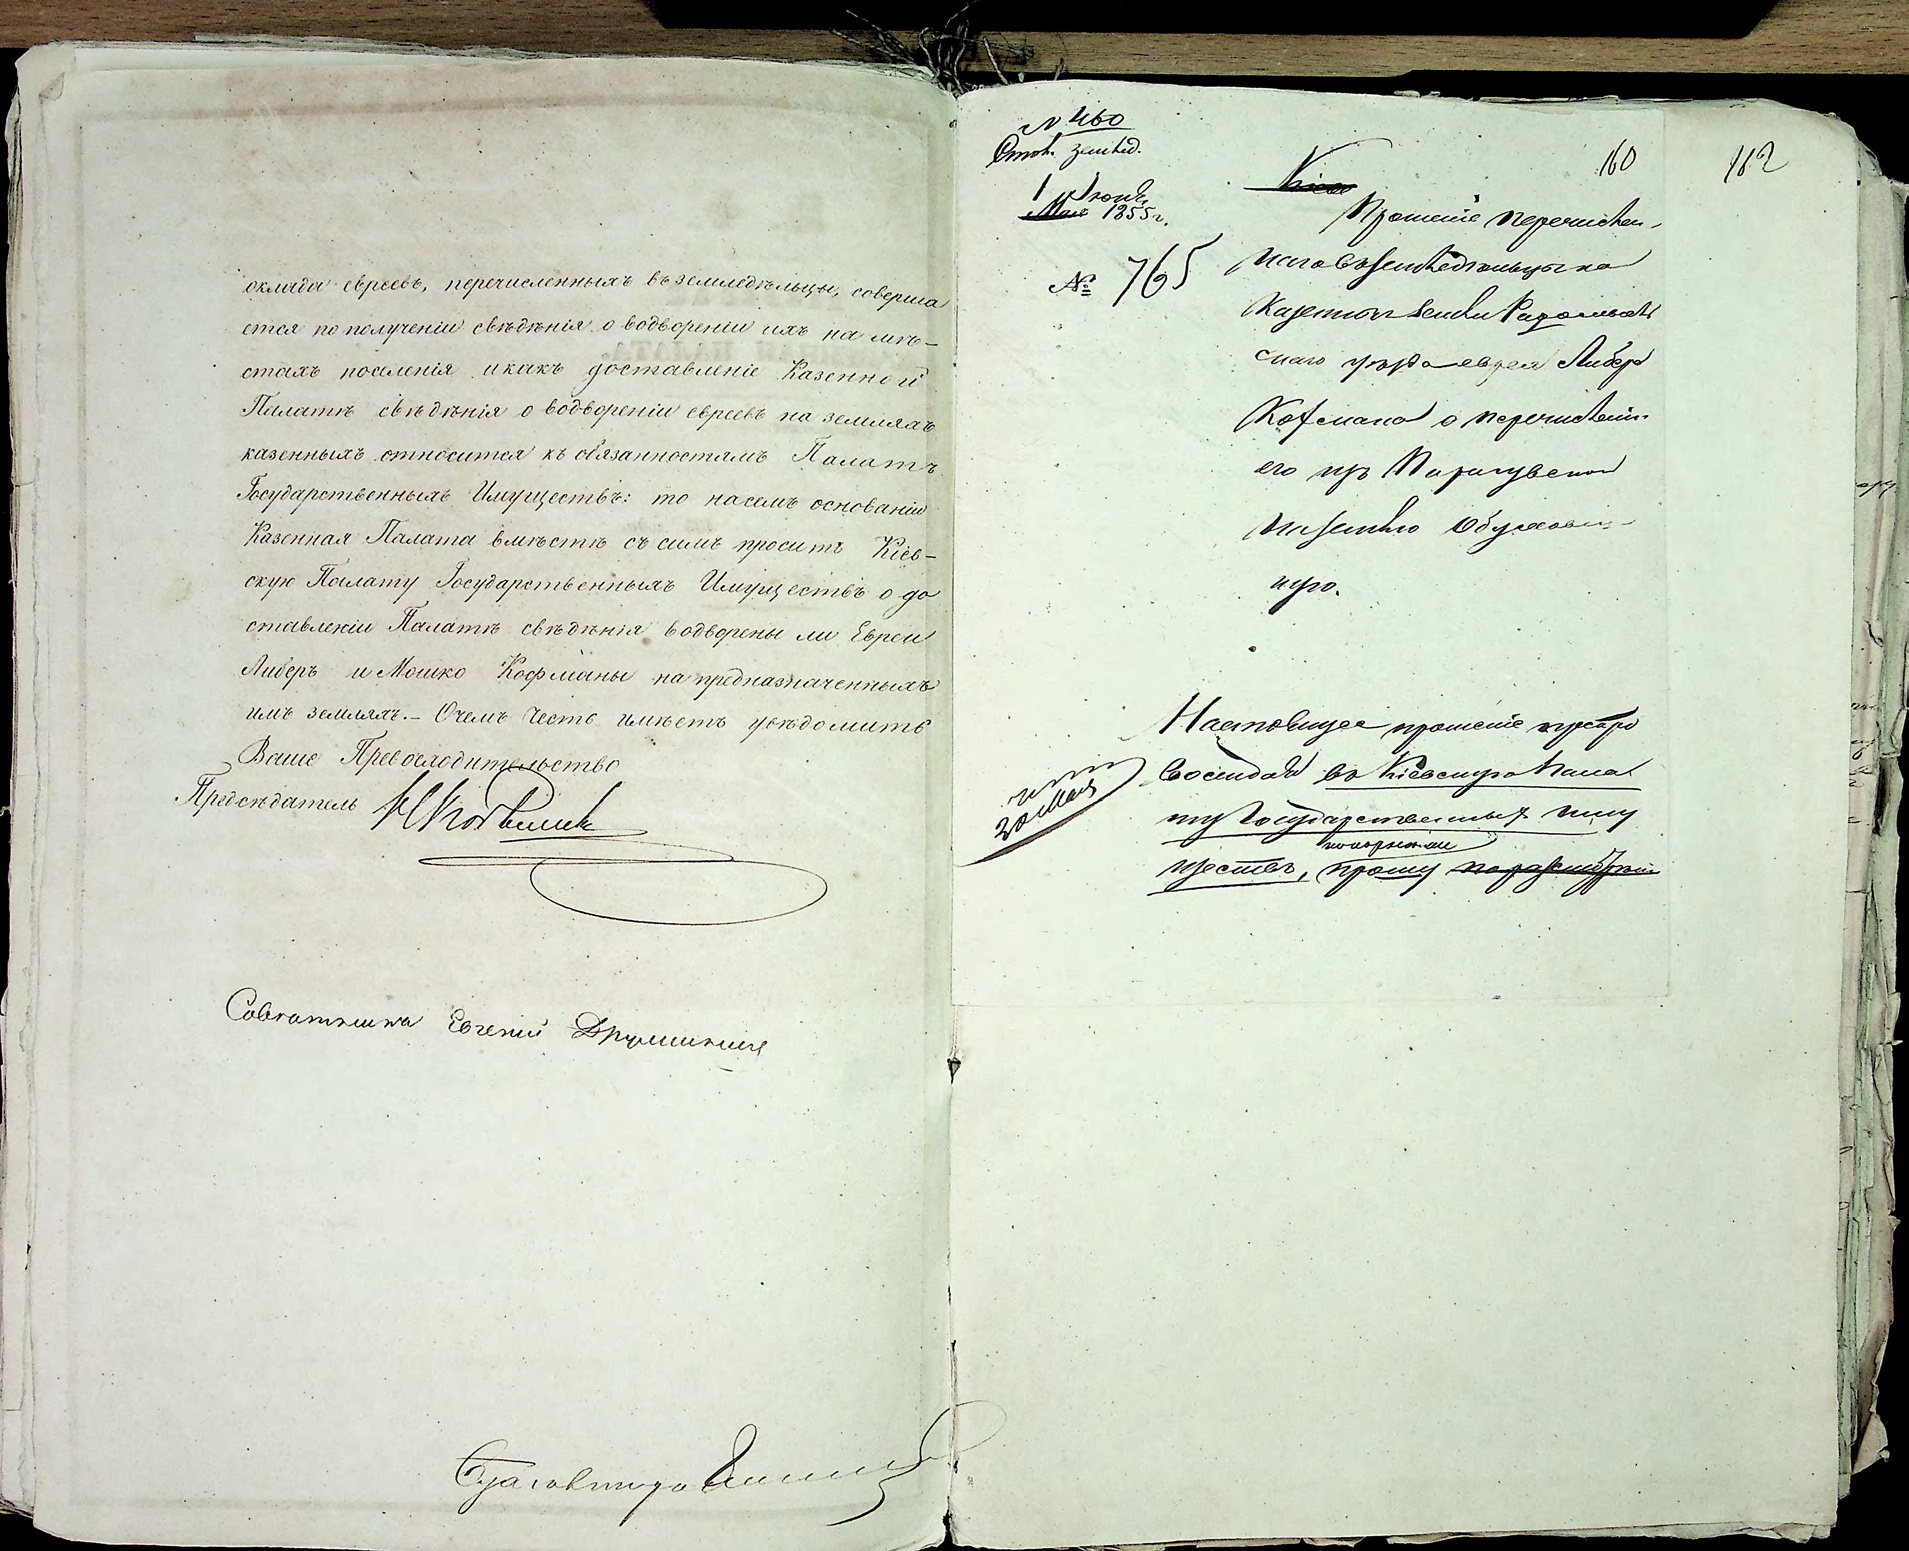 оклада евреевъ, перечисленныхъ въ земледѣльцы, соверша
ется по полученіи свѣдѣнія о водвореніи ихъ на мѣ–
стахъ поселенія и какъ доставленіе Казенной
Палатѣ свѣдѣнія о водвореніи евреевъ на земляхъ
казенныхъ относится къ обязанностямъ Палатъ
Государственныхъ Имуществъ: то на семъ основаніи
Казенная Палата вмѣстѣ съ симъ проситъ Кіев–
скую Палату Государственныхъ Имуществъ о до
ставленіи Палатѣ свѣдѣнія водворены ли Евреи
Либеръ и Мошко Кофманы на предназначенныхъ
имъ земляхъ. – О чемъ честь имѣетъ увѣдомить
Ваше Превосходительство
Предсѣдатель
Совѣтникъ Евгеній
N 460
Отдѣ. землед.
1 Іюня
Мая 1855 г.
№ 765
160
162
Кіев
Прошеніе перечислен–
наго въ земледѣльцы на
казенныя земли
скаго уѣзда еврея Либера
Кофмана о перечисленіи
его изъ
на землю
ную.
Настоящее прошеніе препро
вождая въ Кіевскую Пала
ту Государственныхъ Иму
ществъ, прошу
30 Мая